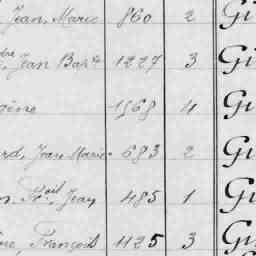 Jean, Marie 860 2 Gi
dre
Jean Bapte 1227 3 Gi
gène 1568 4 Gi
rd, Jean Marie 683 2 Gi
Jean 485 1 Gi
François 1125 3 Gi